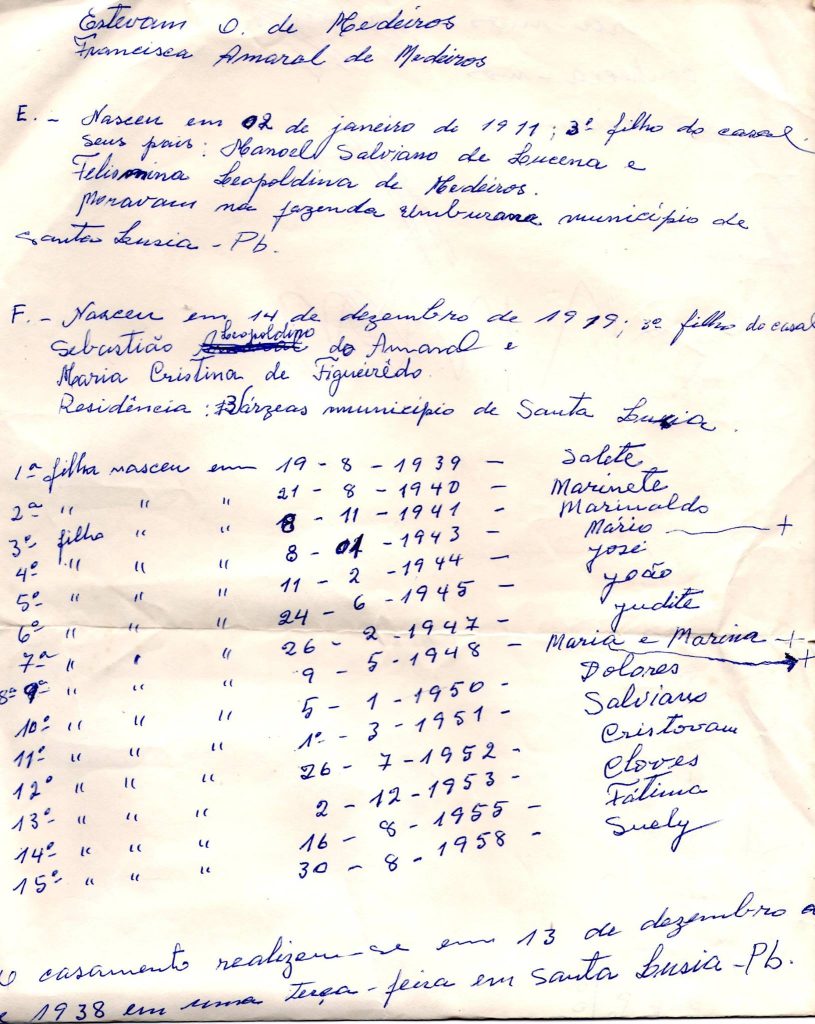 Estevam O. de Medeiros
Francisca Amaral de Medeiros
E. - Nasceu em 02 de janeiro de 1911; 3º filho do casal.
seus pais: Manoel Salviano de Lucena e
Felismina Leopoldina de Medeiros.
Moravam na fazenda Umburana município de
Santa Lusia - Pb.
F. - Nasceu em 14 de dezembro de 1919; 3ª filho do casal
Sebastião Leopoldino do Amaral e
Maria Cristina de Figueirêdo.
Residência: Várzeas município de Santa Lusia.
1ª filha nasceu em 19 - 8 - 1939 - Salete
2ª " " " 21 - 8 - 1940 - Marinete
3º filho " " 8 - 11 - 1941 - Marinaldo
4º " " " 8 - 01 - 1943 - Mário +
5º " " " 11 - 2 - 1944 - José
6º " " " 24 - 6 - 1945 - João
7ª " " " 26 - 2 - 1947 - Judite
8ª 9ª " " " 9 - 5 - 1948 - Maria e Marina + +
10º " " " 5 - 1 - 1950 - Dolores
11º " " " 1º - 3 - 1951 - Salviano
12º " " " 26 - 7 - 1952 - Cristovam
13º " " " 2 - 12 - 1953 - Cloves
14º " " " 16 - 8 - 1955 - Fátima
15º " " " 30 - 8 - 1958 - Suely
O casamento realizou-se em 13 de dezembro d
e 1938 em uma terça-feira em Santa Lusia - Pb.